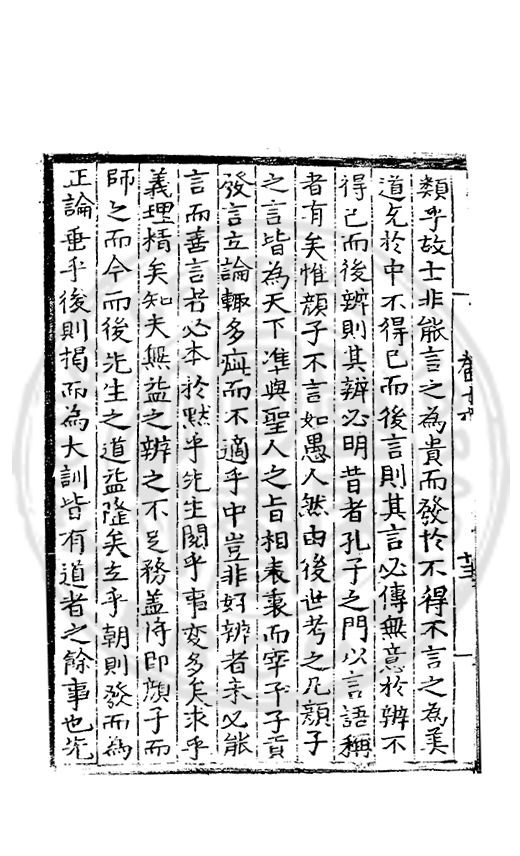 類乎故士非能言之為貴而發於不得不言之為美
道充於中不得已而後言則其言必傳無意於辨不
得已而後辨則其辨必明昔者孔子之門以言語稱
者有矣惟顏子不言如愚人然由後世考之凡顏子
之言皆為天下準與聖人之旨相表裏而宰予子貢
發言立論輙多疵而不適乎中豈非好辨者未必能
言而善言者必本於黙乎先生閱乎事變多矣求乎
義理精矣知夫無益之辨之不足務盖將即顏子而
師之而今而後先生之道益隆矣立乎朝則發而為
正論垂乎後則揭而為大訓皆有道者之餘事也先